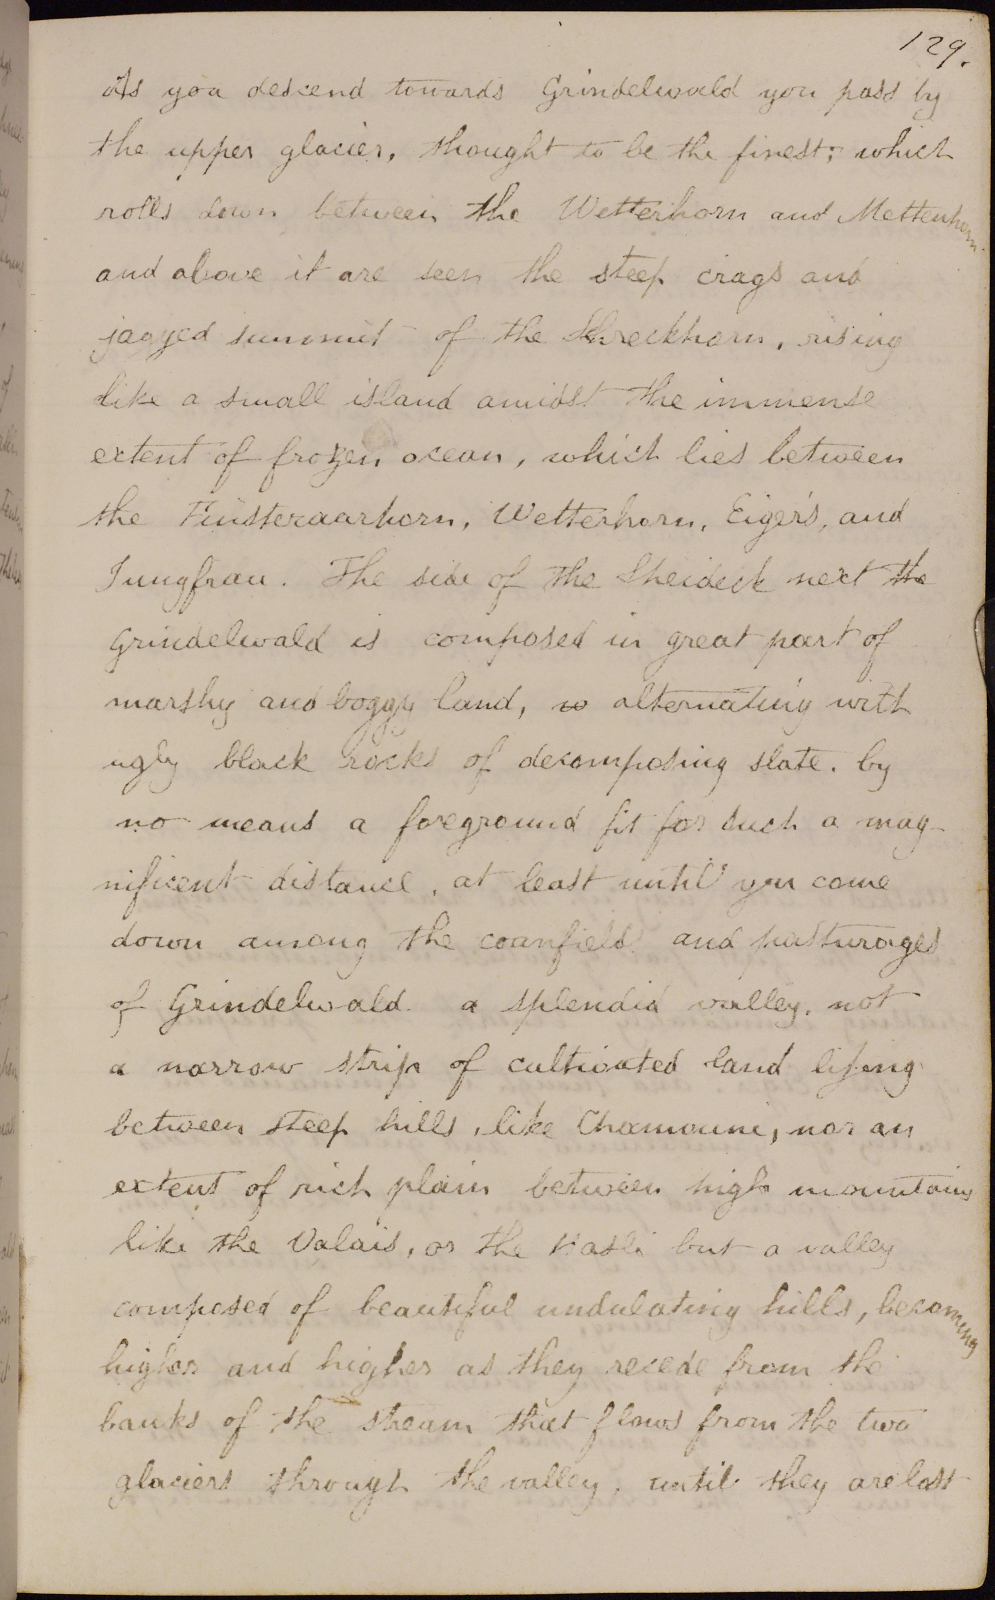 129.
As you descend towards Grindelwald you pass by
the upper glacier, thought to be the finest; which
rolls down between the Wetterhorn and Mettenhorn
and above it are seen the steep crags and
jagged summit of the Shreckhorn, rising
like a small island amidst the immense
extent of frozen ocean, which lies between
the Finsteraarhorn, Wetterhorn, Eigers, and
Jungfrau. The side of the Sheideck next the
Grindelwald is composed in great part of
marshy and boggy land, alternating with
ugly black rocks of decomposing slate. by
no means a foreground fit for such a mag-
nificent distance, at least until you come
down among the coanfields and pasturages
of Grindelwald. a splendid valley, not
a narrow strip of cultivated land lying
between steep hills, like Chamouni, nor an
extent of rich plain between high mountains
like the Valais, or the Hasli but a valley
composed of beautiful undulating hills, becoming
higher and higher as they recede from the
banks of the stream that flows from the two
glaciers through the valley, until they are lost